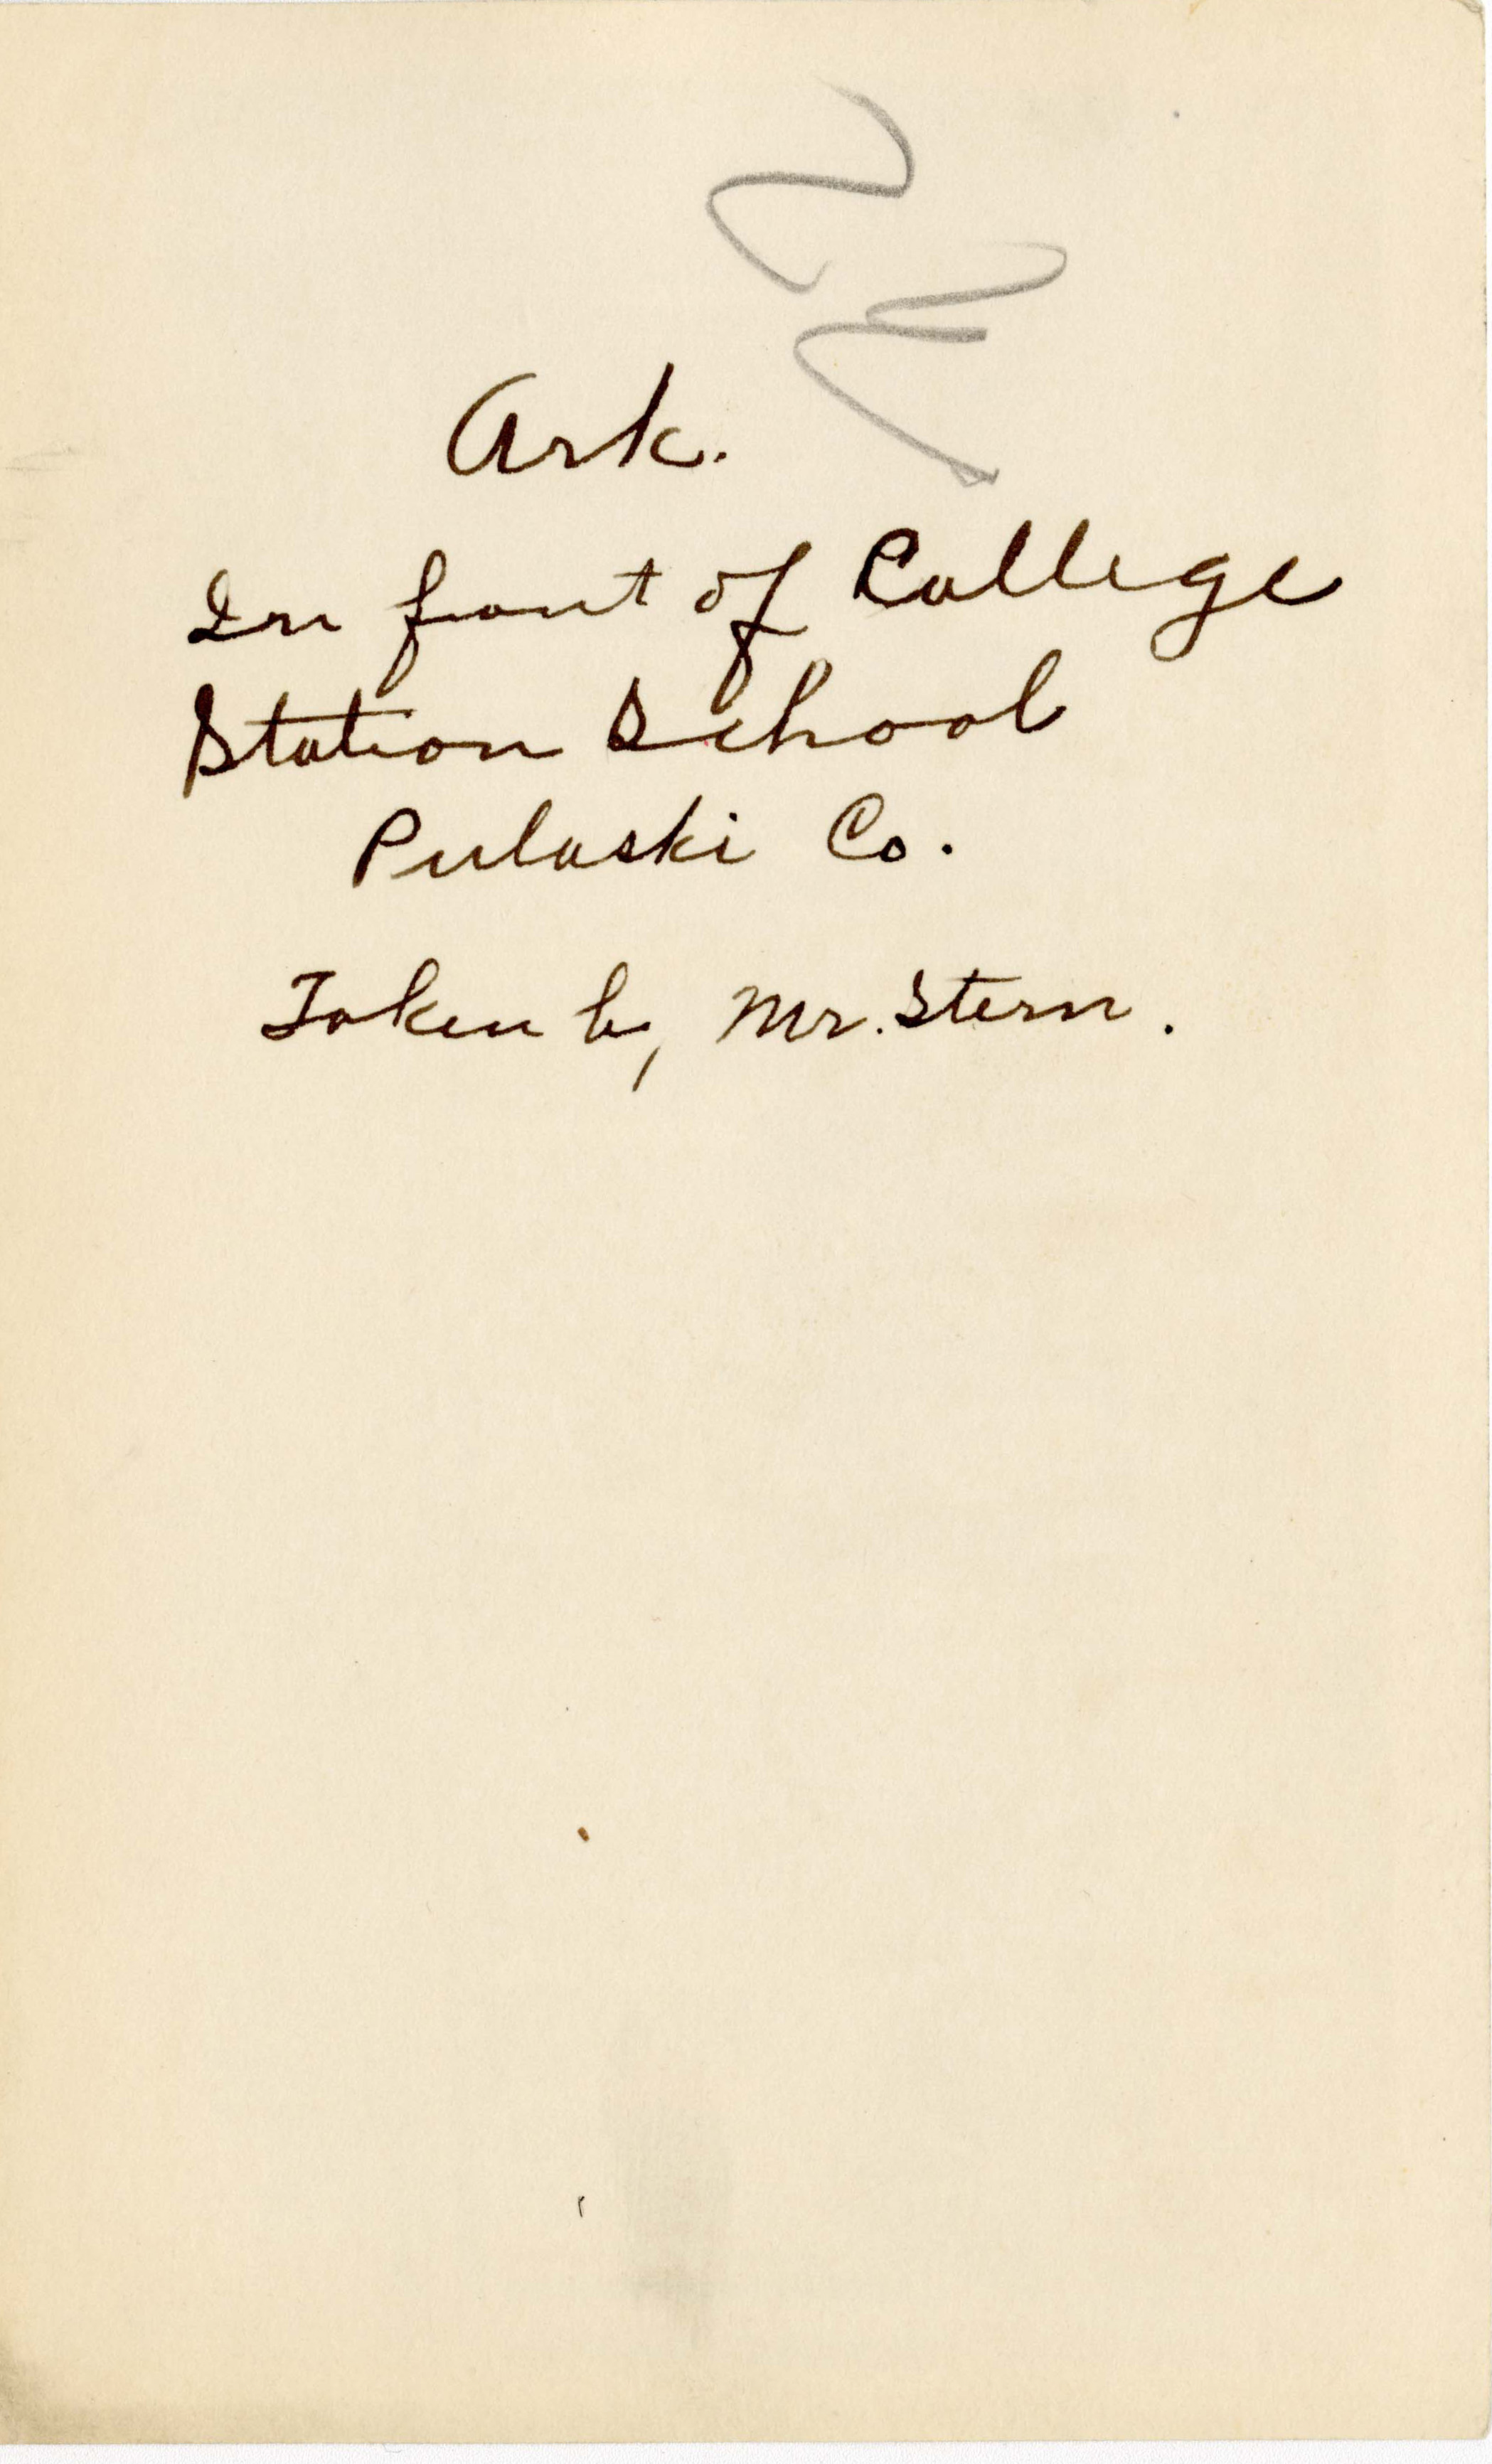 Ark.
In front of College
Station School
Pulaski Co.
Taken by Mr. Stern.